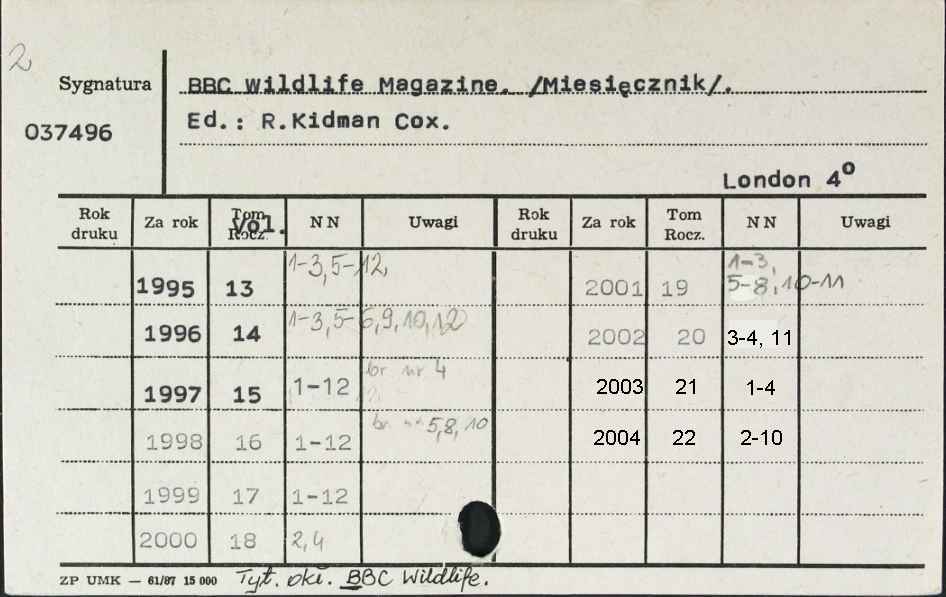 2
Sygnatura BBC Wildlife Magazine. /Miesięcznik/.
037496 Ed.: R.Kidman Cox.
London 4°
Rok druku Za rok Tom Rocz. Vol. NN Uwagi Rok druku Za rok Tom Rocz. NN Uwagi
1995 13 1-3,5-12, 2001 19 1-3, 5-8,10-11
1996 14 1-3,5-6,9,10,12 2002 20 3-4, 11
1997 15 1-12 br nr 4 2003 21 1-4
1998 16 1-12 br nr 5,8,10 2004 22 2-10
1999 17 1-12
2000 18 2,4
ZP UMK — 61/87 15 000 Tyt. okł. BBC Wildlife.